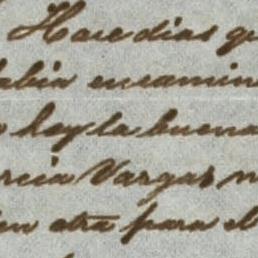 Hace dias qu
abia encamin
hoy la buena
rcia Vargas n
en otra para el